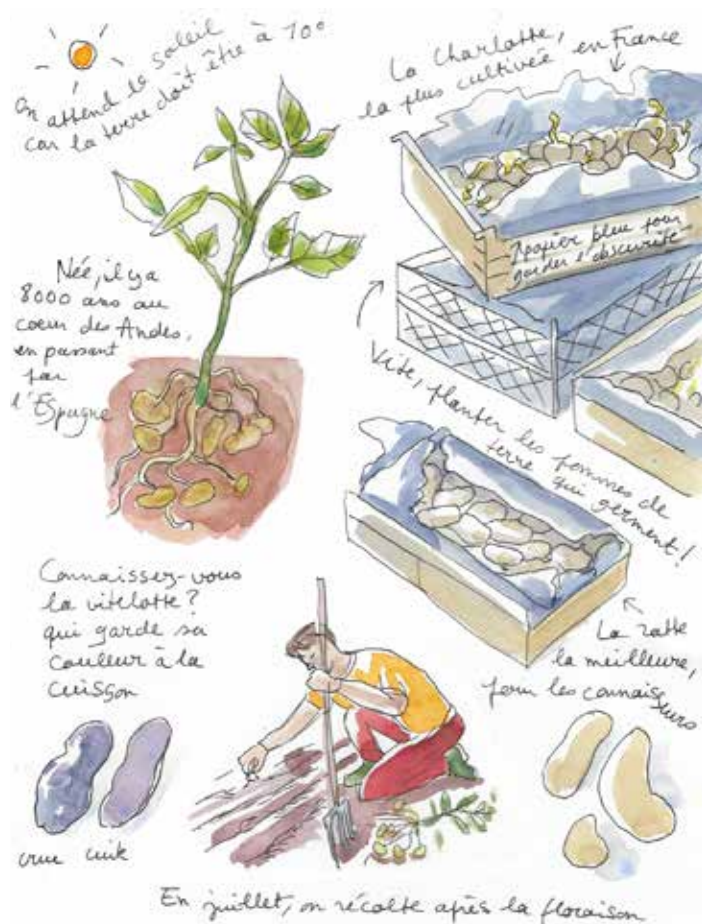 On attend le soleil
car la terre doit être à 10°
La Charlotte,
la plus cultivée en France
Papier bleu pour
garder l'obscurité
Née, il y a
8000 ans au
coeur des Andes,
en passant
par
l'Espagne
Vite, planter les pommes de
terre qui germent !
Connaissez-vous
la vitelotte ?
qui garde sa
couleur à la
cuisson
La ratte
la meilleure,
pour les connaisseurs
crue cuite
En juillet, on récolte après la floraison